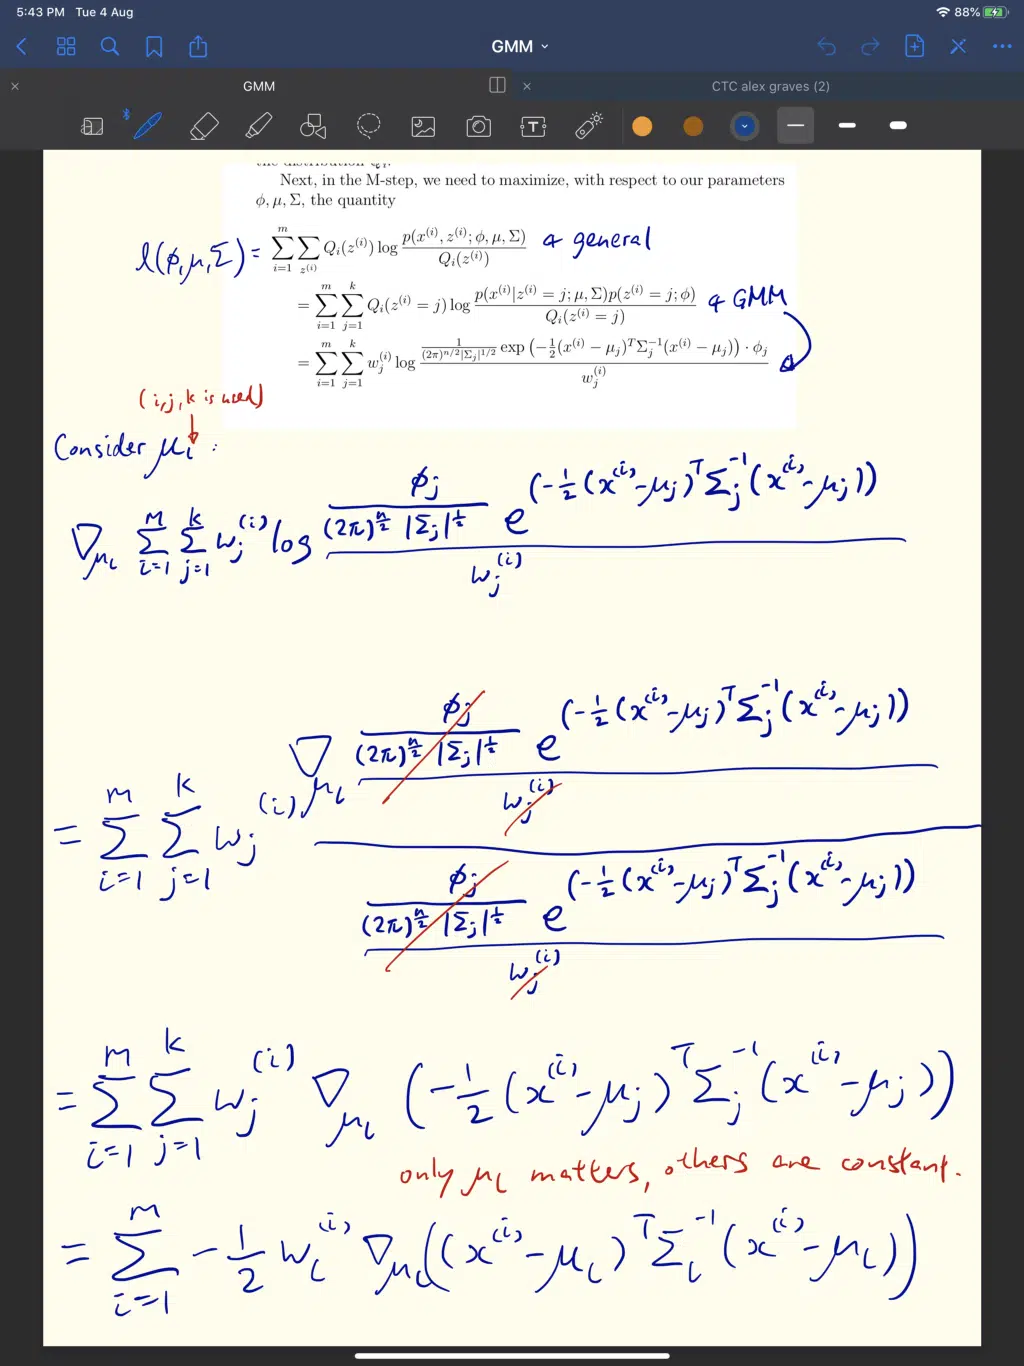 5:43 PM Tue 4 Aug 88%
GMM
GMM CTC alex graves (2)
Next, in the M-step, we need to maximize, with respect to our parameters
ϕ, μ, Σ, the quantity
l(ϕ, μ, Σ) = ∑_{i=1}^{m} ∑_{z^{(i)}} Q_i(z^{(i)}) log p(x^{(i)}, z^{(i)}; ϕ, μ, Σ) / Q_i(z^{(i)}) ← general
= ∑_{i=1}^{m} ∑_{j=1}^{k} Q_i(z^{(i)} = j) log p(x^{(i)}|z^{(i)} = j; μ, Σ)p(z^{(i)} = j; ϕ) / Q_i(z^{(i)} = j) ← GMM
= ∑_{i=1}^{m} ∑_{j=1}^{k} w_j^{(i)} log (1 / ((2π)^{n/2}|Σ_j|^{1/2})) exp(−½(x^{(i)} − μ_j)^T Σ_j^{-1}(x^{(i)} − μ_j)) · ϕ_j / w_j^{(i)}
(i, j, k is used)
Consider μ_l :
∇_{μ_l} ∑_{i=1}^{M} ∑_{j=1}^{k} w_j^{(i)} log (ϕ_j / ((2π)^{n/2} |Σ_j|^{1/2})) e^{(−½(x^{(i)}−μ_j)^T Σ_j^{-1}(x^{(i)}−μ_j))} / w_j^{(i)}
∇_{μ_l} (ϕ_j / ((2π)^{n/2} |Σ_j|^{1/2})) e^{(−½(x^{(i)}−μ_j)^T Σ_j^{-1}(x^{(i)}−μ_j))} / w_j^{(i)}
= ∑_{i=1}^{m} ∑_{j=1}^{k} w_j^{(i)}
(ϕ_j / ((2π)^{n/2} |Σ_j|^{1/2})) e^{(−½(x^{(i)}−μ_j)^T Σ_j^{-1}(x^{(i)}−μ_j))} / w_j^{(i)}
= ∑_{i=1}^{m} ∑_{j=1}^{k} w_j^{(i)} ∇_{μ_l} (−½(x^{(i)}−μ_j)^T Σ_j^{-1}(x^{(i)}−μ_j))
only μ_l matters, others are constant.
= ∑_{i=1}^{m} −½ w_l^{(i)} ∇_{μ_l}((x^{(i)}−μ_l)^T Σ_l^{-1}(x^{(i)}−μ_l))